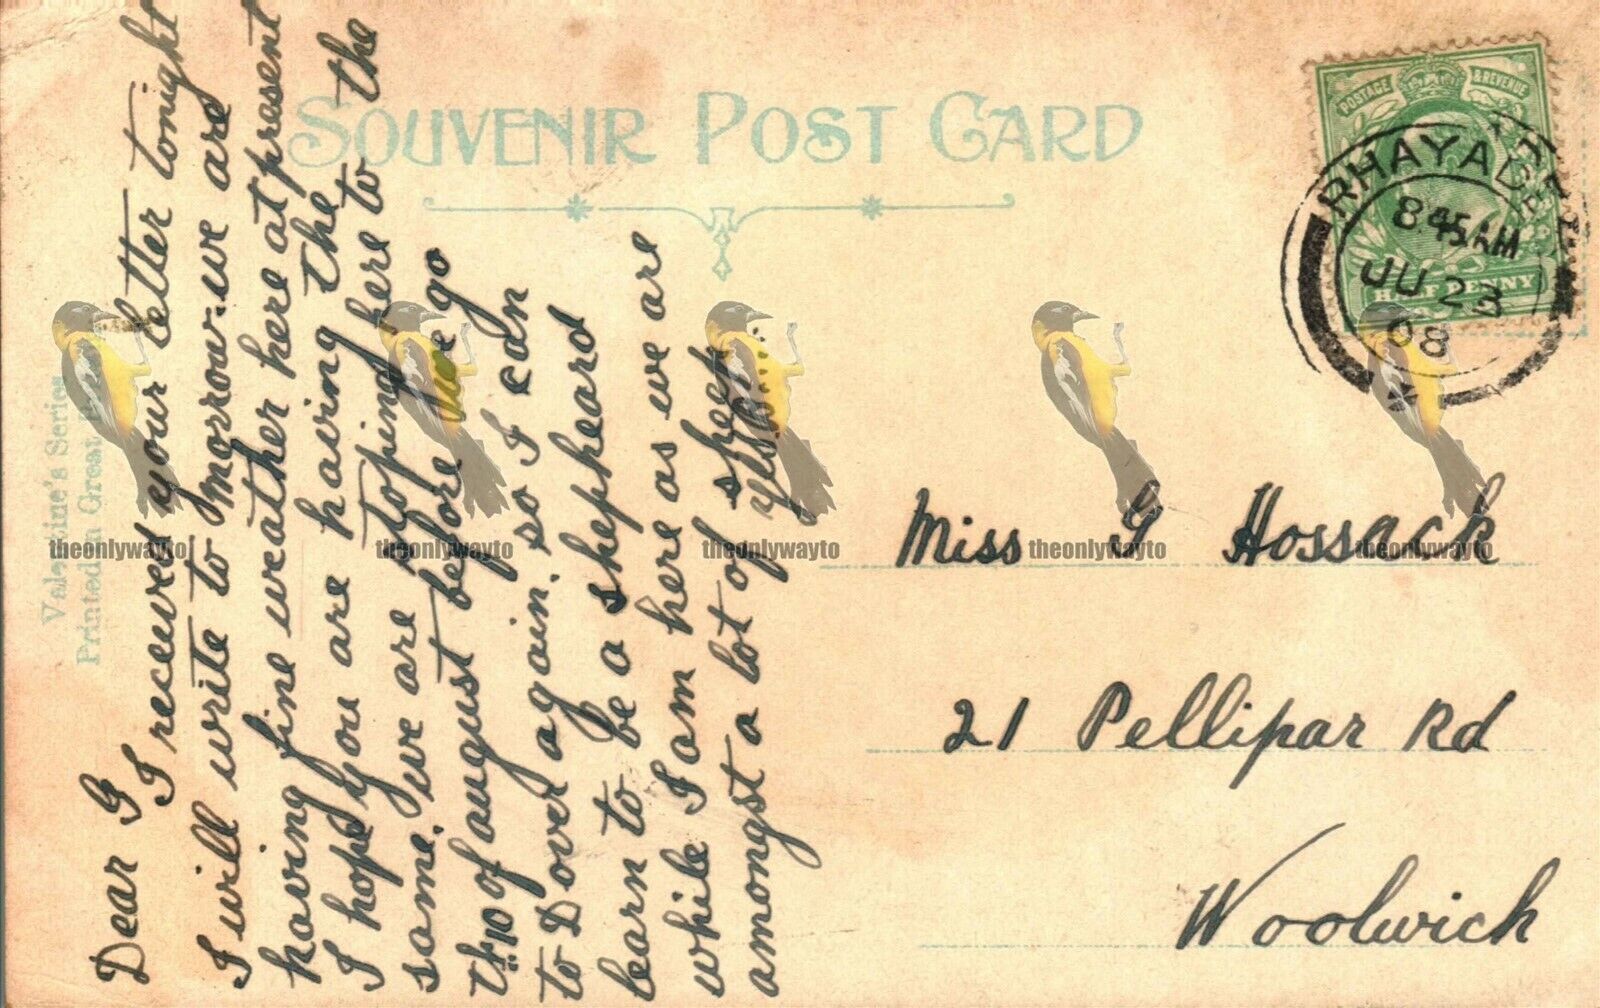 SOUVENIR POST CARD
Valentine's Series
Printed in Great
POSTAGE & REVENUE
HALF PENNY
RHAYADER
8.45 AM
JU 23
08
Dear G
I received your letter tonight
I will write to morrow. we are
having fine weather here at present
I hope you are having the
same. we are stoping here to the
10 of august before we go
to Dover again. so I can
learn to be a shepheard
while I am here as we are
amongst a lot of sheep
yes
Miss G Hossack
21 Pellipar Rd
Woolwich
theonlywayto theonlywayto theonlywayto theonlywayto theonlywayto